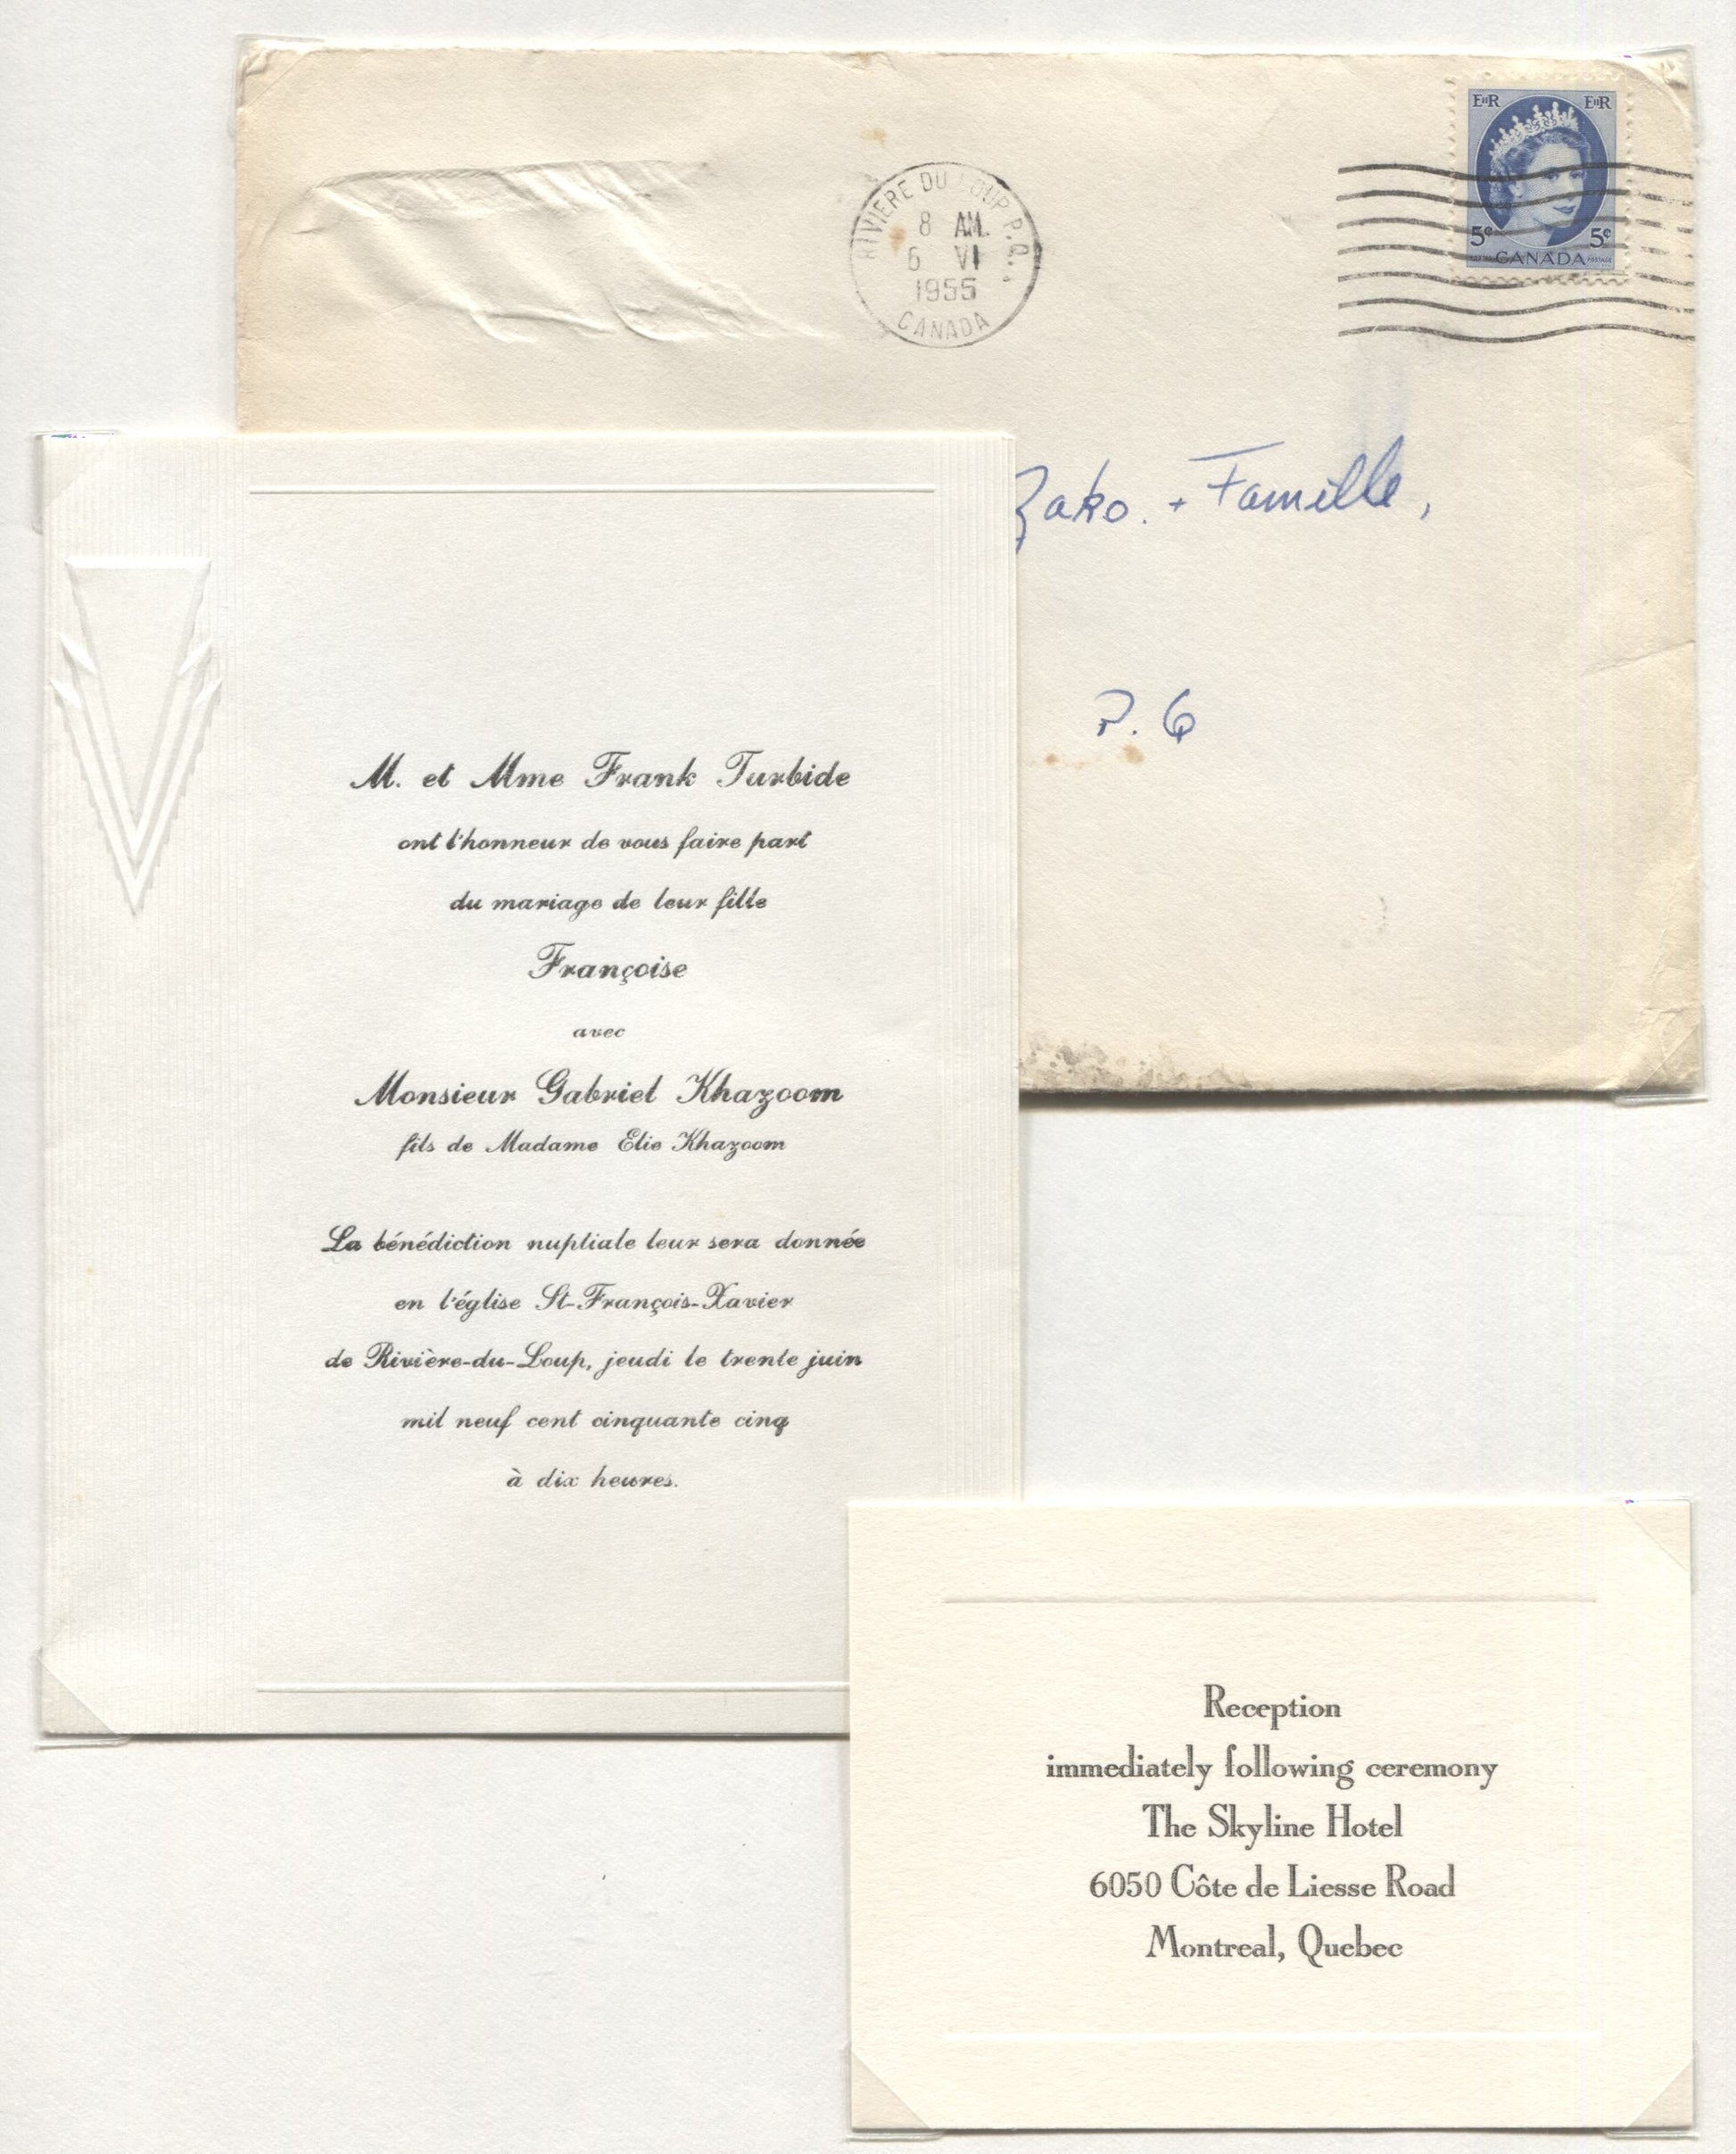 RIVIERE DU LOUP P.Q.
8 AM
6 VI
1955
CANADA
EIIR EIIR
5¢ 5¢
POSTES CANADA POSTAGE
Zako. + Famille,
P. Q
M. et Mme Frank Turbide
ont l'honneur de vous faire part
du mariage de leur fille
Françoise
avec
Monsieur Gabriel Khazoom
fils de Madame Elie Khazoom
La bénédiction nuptiale leur sera donnée
en l'église St-François-Xavier
de Rivière-du-Loup, jeudi le trente juin
mil neuf cent cinquante cinq
à dix heures.
Reception
immediately following ceremony
The Skyline Hotel
6050 Côte de Liesse Road
Montreal, Quebec